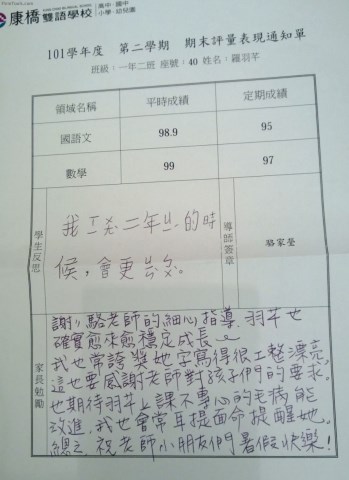 康橋雙語學校 高中·國中
小學·幼兒園
101學年度 第二學期 期末評量表現通知單
班級：一年二班 座號：40 姓名：羅羽芊
領域名稱 平時成績 定期成績
國語文 98.9 95
數學 99 97
學生反思
我 二年 的時
候，會更
導師簽章
駱家瑩
家長勉勵
謝謝駱老師的細心指導，羽芊也
確實愈來愈穩定成長。
我也常誇獎她字寫得很工整漂亮。
這也要感謝老師對孩子們的要求。
也期待羽芊上課不專心的毛病能
改進，我也會常耳提面命提醒她。
總之，祝老師小朋友們 暑假快樂！